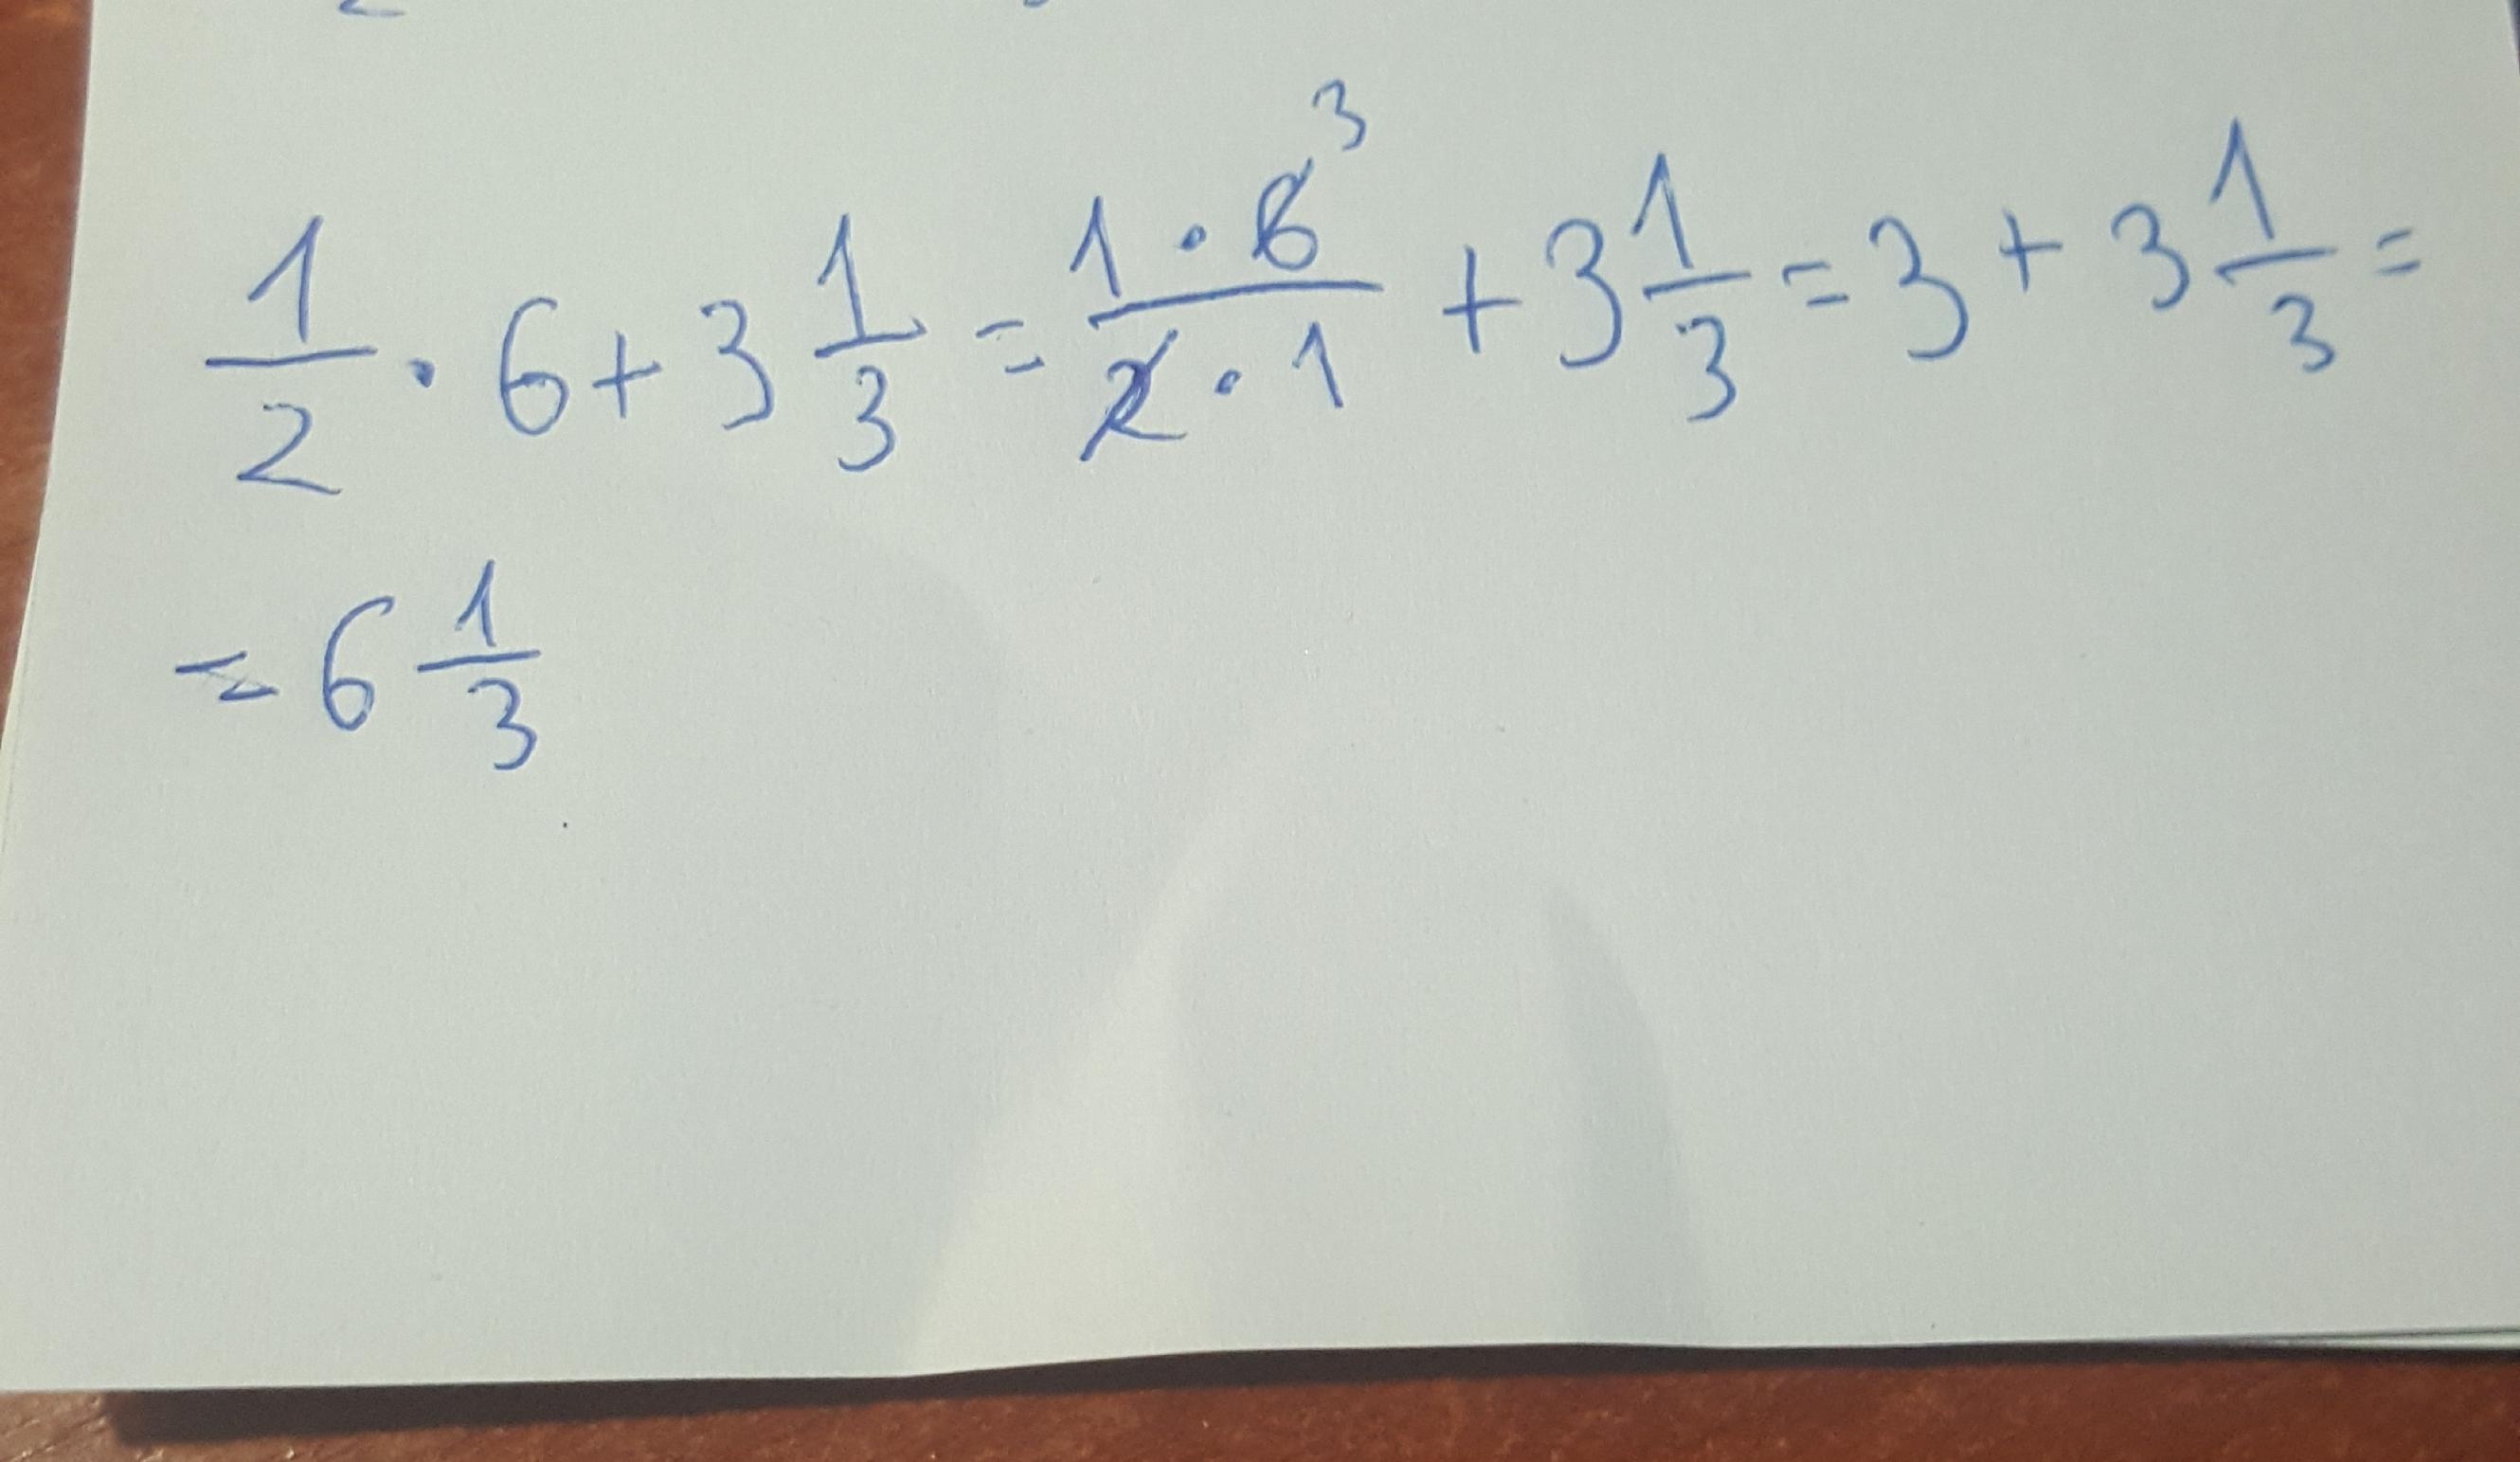 1/2 · 6 + 3 1/3 = (1 · 6 3)/(2 · 1) + 3 1/3 = 3 + 3 1/3 =
= 6 1/3